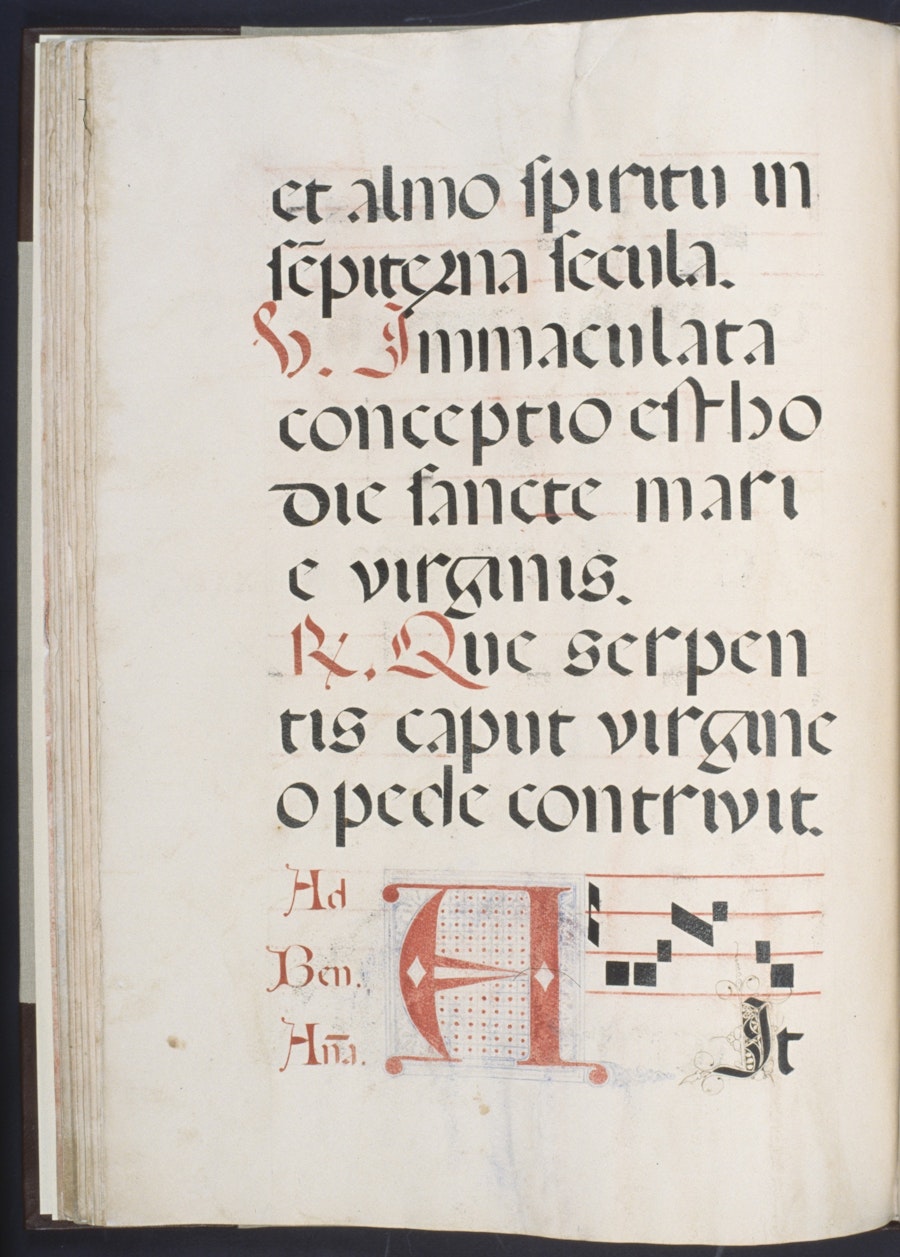 et almo spiritu in
sēpiterna secula.
V. Immaculata
conceptio est ho
die sancte mari
e virginis.
R. Que serpen
tis caput virgine
o pede contrivit.
Ad
Ben.
Aña.
A It